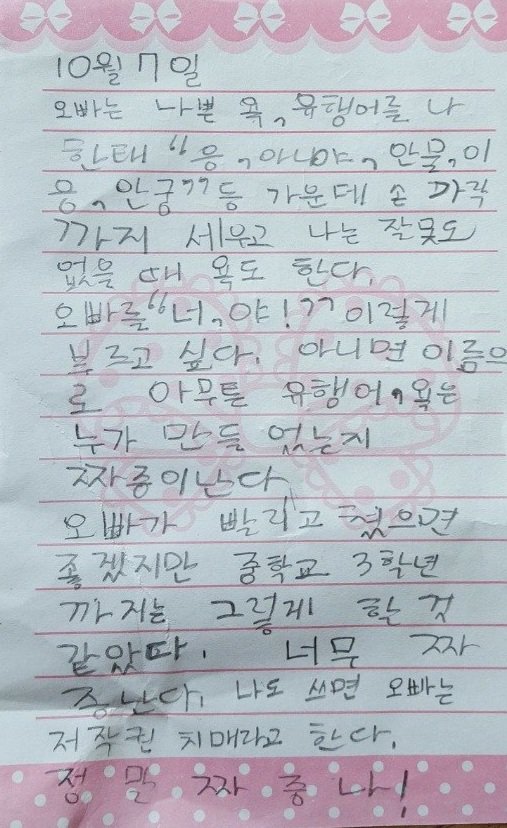 10월 7일
오빠는 나쁜 욕, 유행어를 나
한태 "응, 아니야, 안물, 이
응, 안궁" 등 가운데 손 까락
까지 세우고 나는 잘못도
없을 때 욕도 한다.
오빠를 "너, 야!" 이렇게
부르고 싶다. 아니면 이름으
로 아무튼 유행어, 욕은
누가 만들 었는지
짜증이난다
오빠가 빨리고 혔으면
좋겠지만 중학교 3학년
까지는 그렇게 할 것
같았다. 너무 짜
증난다. 나도 쓰면 오빠는
저작권 치매라고 한다.
정말 짜증나!